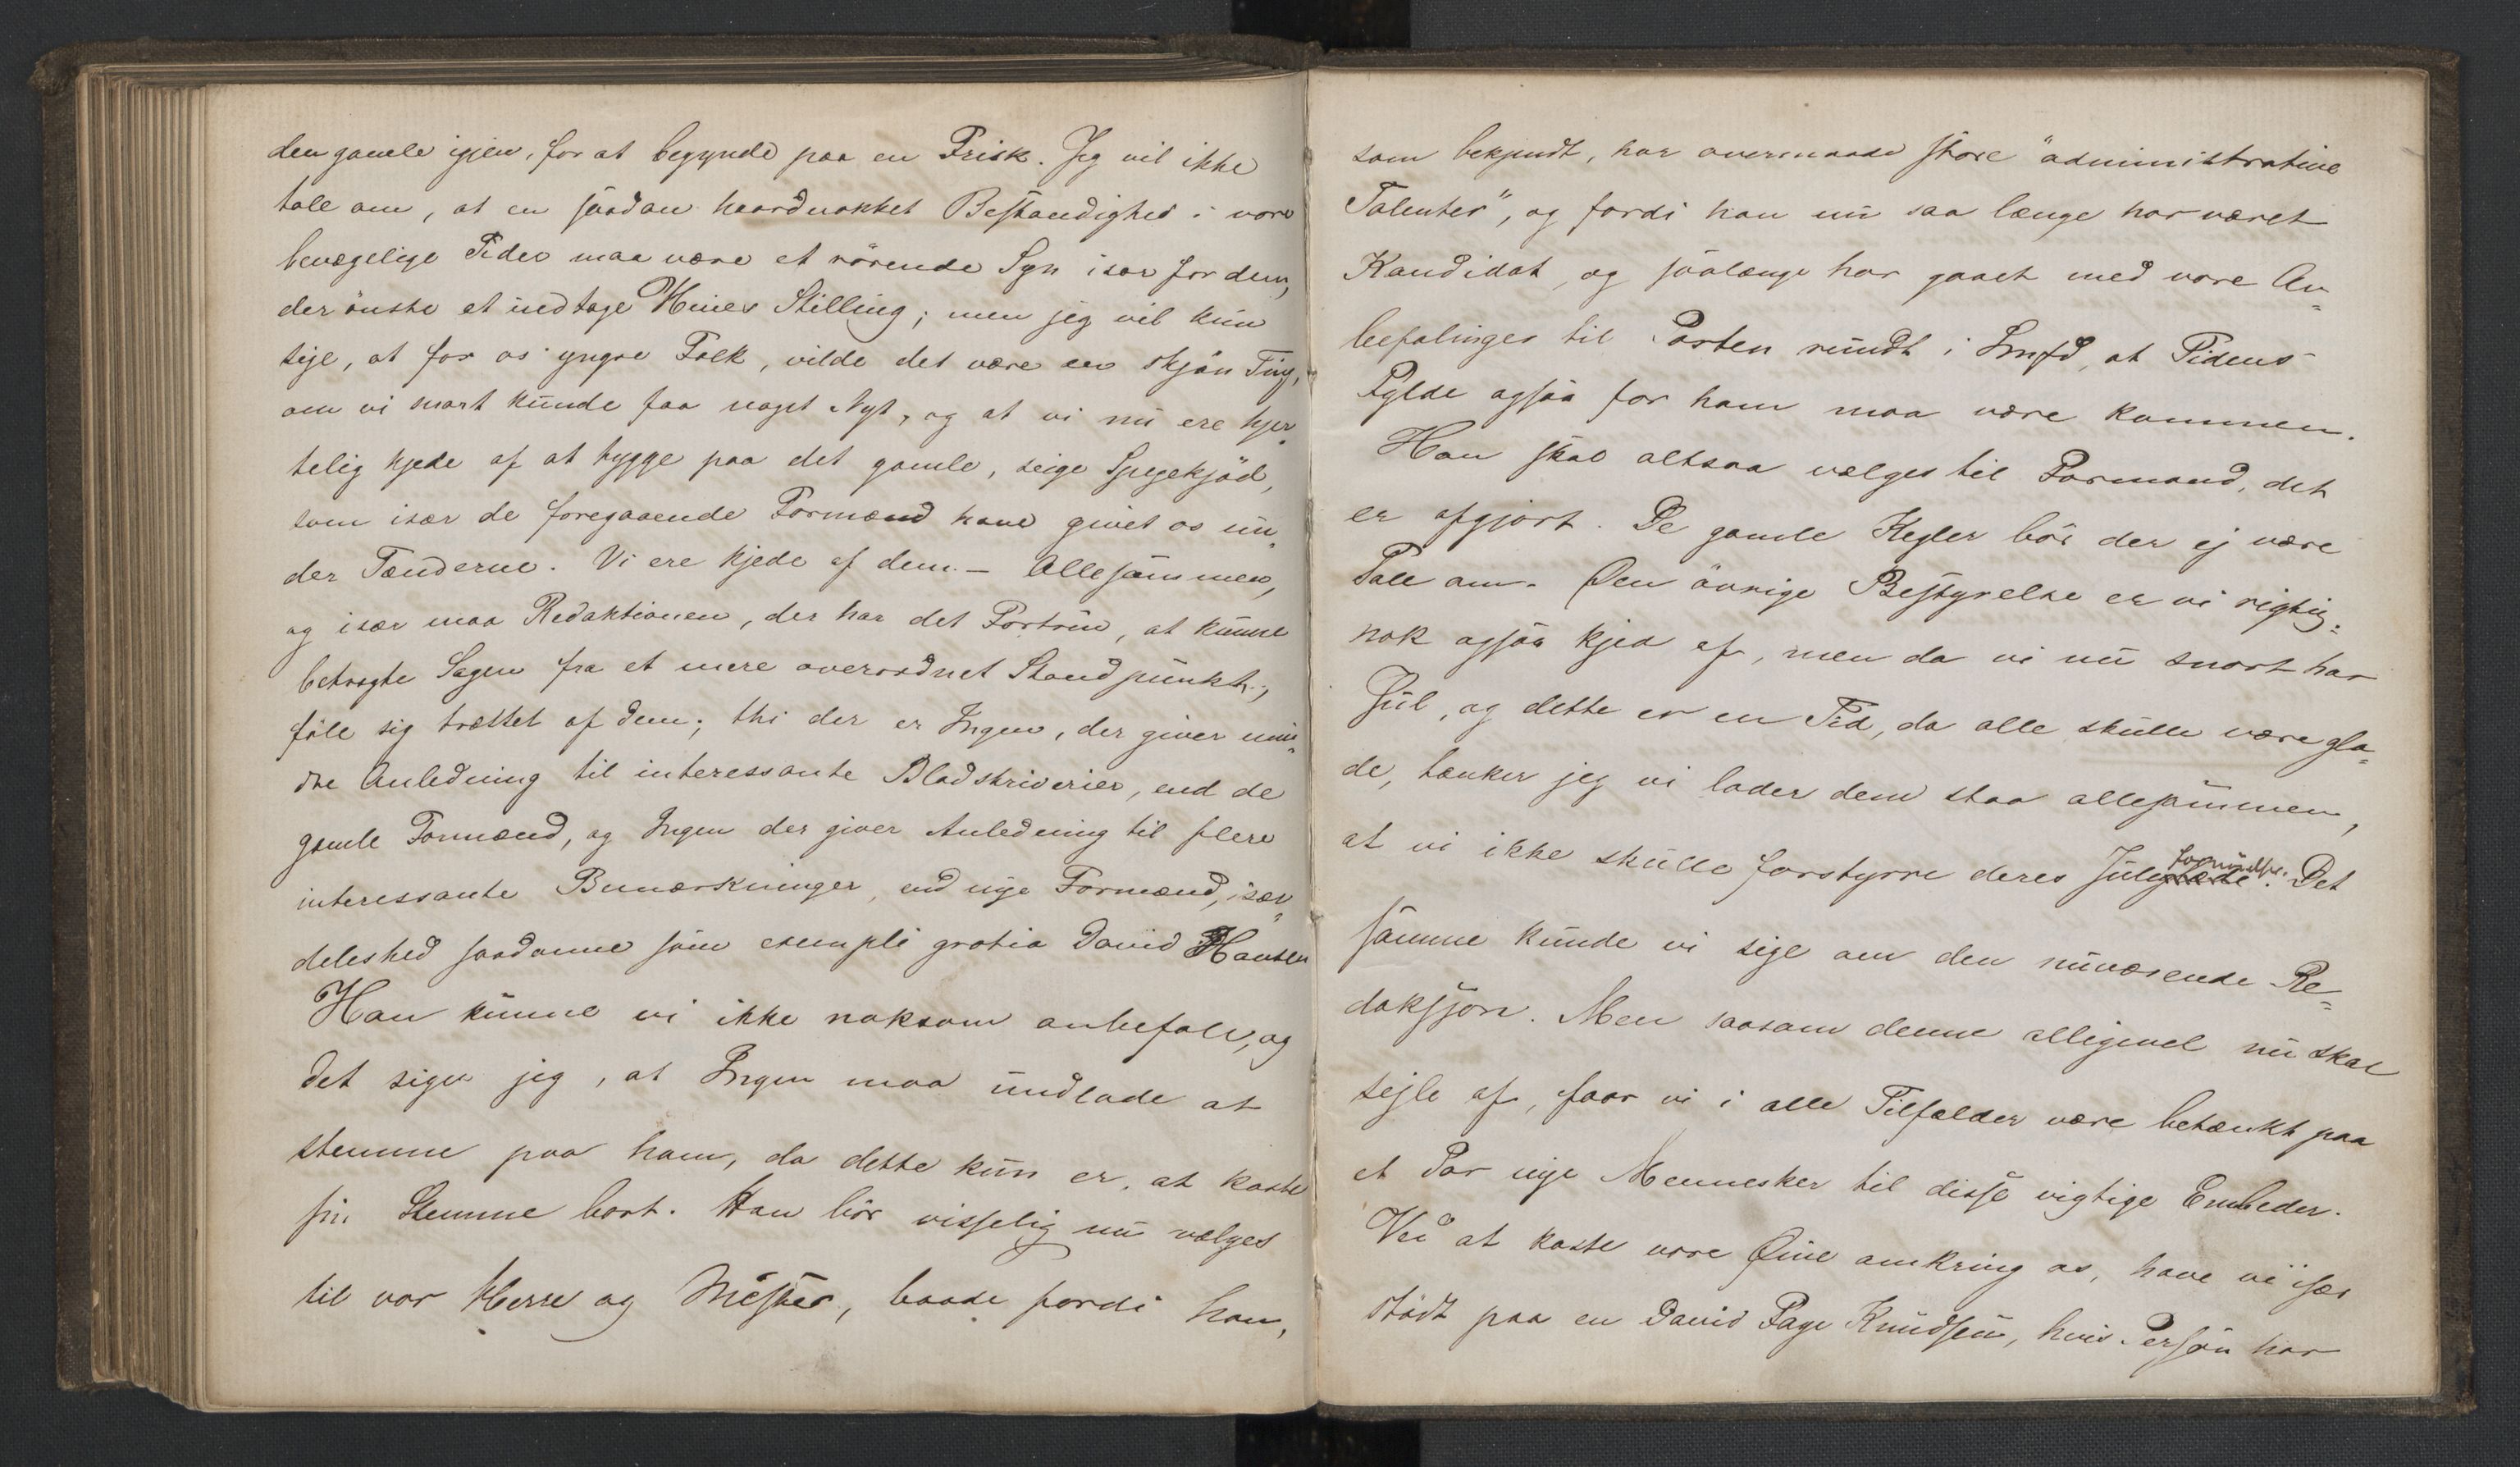 den gamle igjen, for at begynde paa en Frisk. Jeg vil ikke
tale om, at en saadan haardnakket Bestandighed i vore
bevægelige Tider maa være et rörende Syn især for dem,
der önske et indtage Hines Stilling; men jeg vil kun
sige, at for os yngre Folk, vilde det være en skjön Ting,
om vi snart kunde faa noget Nyt, og at vi nu ere hjer„
telig kjede af at tygge paa det gamle, seige Spegekjöd,
som især de foregaaende Formænd have givet os un„
der Tænderne. Vi ere kjede af dem – Allesammen,
og især maa Redaktionen, der har det Fortrin, at kunne
betragte Sagen fra et mere overordnet Standpunkt,
föle sig trættet af dem; thi der er Ingen, der giver min„
dre Anledning til interessante Bladskriverier, end de
gamle Formænd, og Ingen der giver Anledning til flere
interessante Bemærkninger, end nye Formænd, især„
deleshed saadanne som exempli gratia David Hansen
Han kunne vi ikke noksom anbefale, og
det siger jeg, at Ingen maa undlade at
stemme paa ham, da dette kun er, at kaste
sin Stemme bort. Han bör visselig nu vælges
til vor Herre og Mester, baade fordi han,
som bekjendt, har overmaade store "administrative
Talenter", og fordi han nu saa længe har været
Kandidat, og saalænge har gaaet med vore An„
befalinger til Posten rundt i Smfd, at Tidens
Fylde ogsaa for ham maa være kommen.
Han skal altsaa vælges til Formand, det
er afgjort. De gamle Kegler bör der ej være
Tale om. Den övrige Bestyrelse er vi rigtig„
nok ogsaa kjed af, men da vi nu snart har
Jul, og dette er en Tid, da alle skulle være gla„
de, tænker jeg vi lader dem staa allesammen,
at vi ikke skulle forstyrre deres Juleglæde fornöielse. Det
samme kunde vi sige om den nuværende Re„
daksjon. Men saasom denne alligevel nu skal
sejle af, faar vi i alle Tilfælder være betænkt paa
et Par nye Mennesker til disse vigtige Embeder.
Ved at kaste vore Øine omkring os, have vi især
stödt paa en David Fage Knudsen, hvis Person har